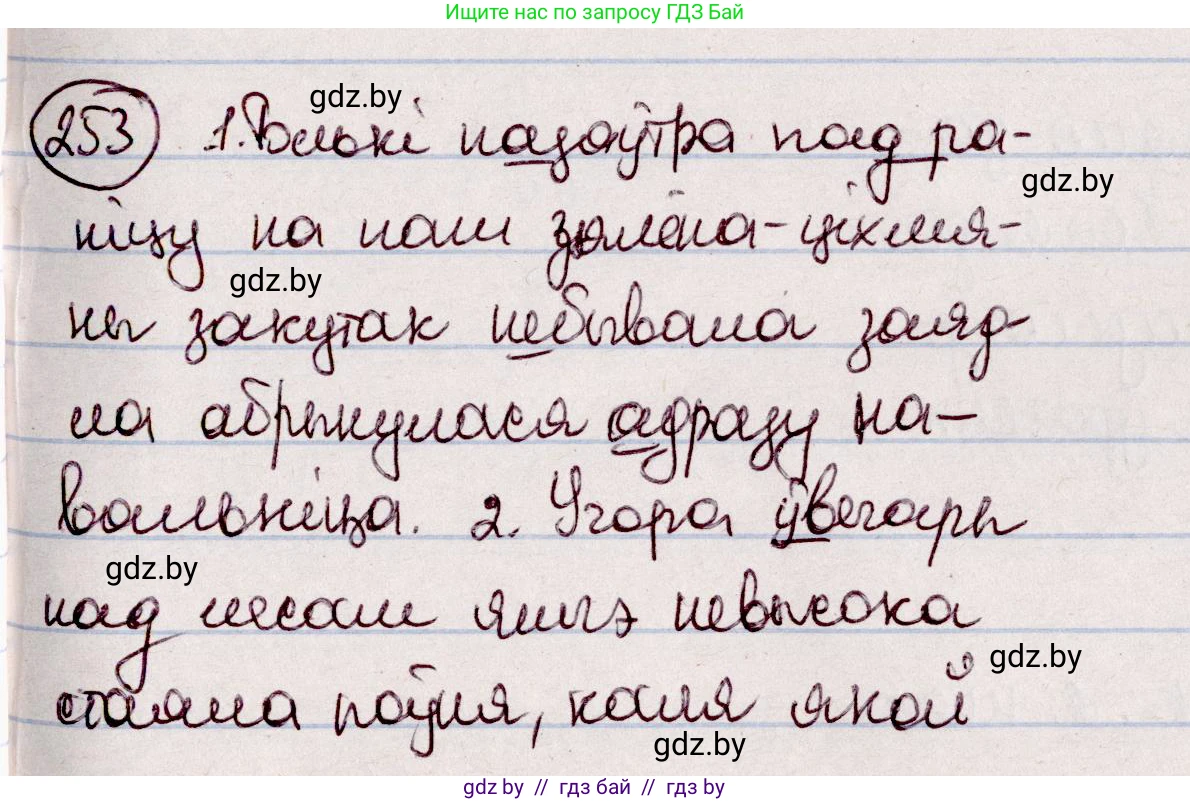 Ищите нас по запросу ГДЗ Бай
253 1. Толькі назаўтра пад ра-
gdz.by
gdz.by
ніцу на наш зялёна-ціхмя-
gdz.by
ны закутак небывала заляд-
ла абрынулася адразу на-
вальніца. 2. Угора ўвечары
gdz.by
над лесам яшчэ невысока
gdz.by
стаяла поўня, каля якой
gdz.by
gdz.by // гдз бай // гдз by